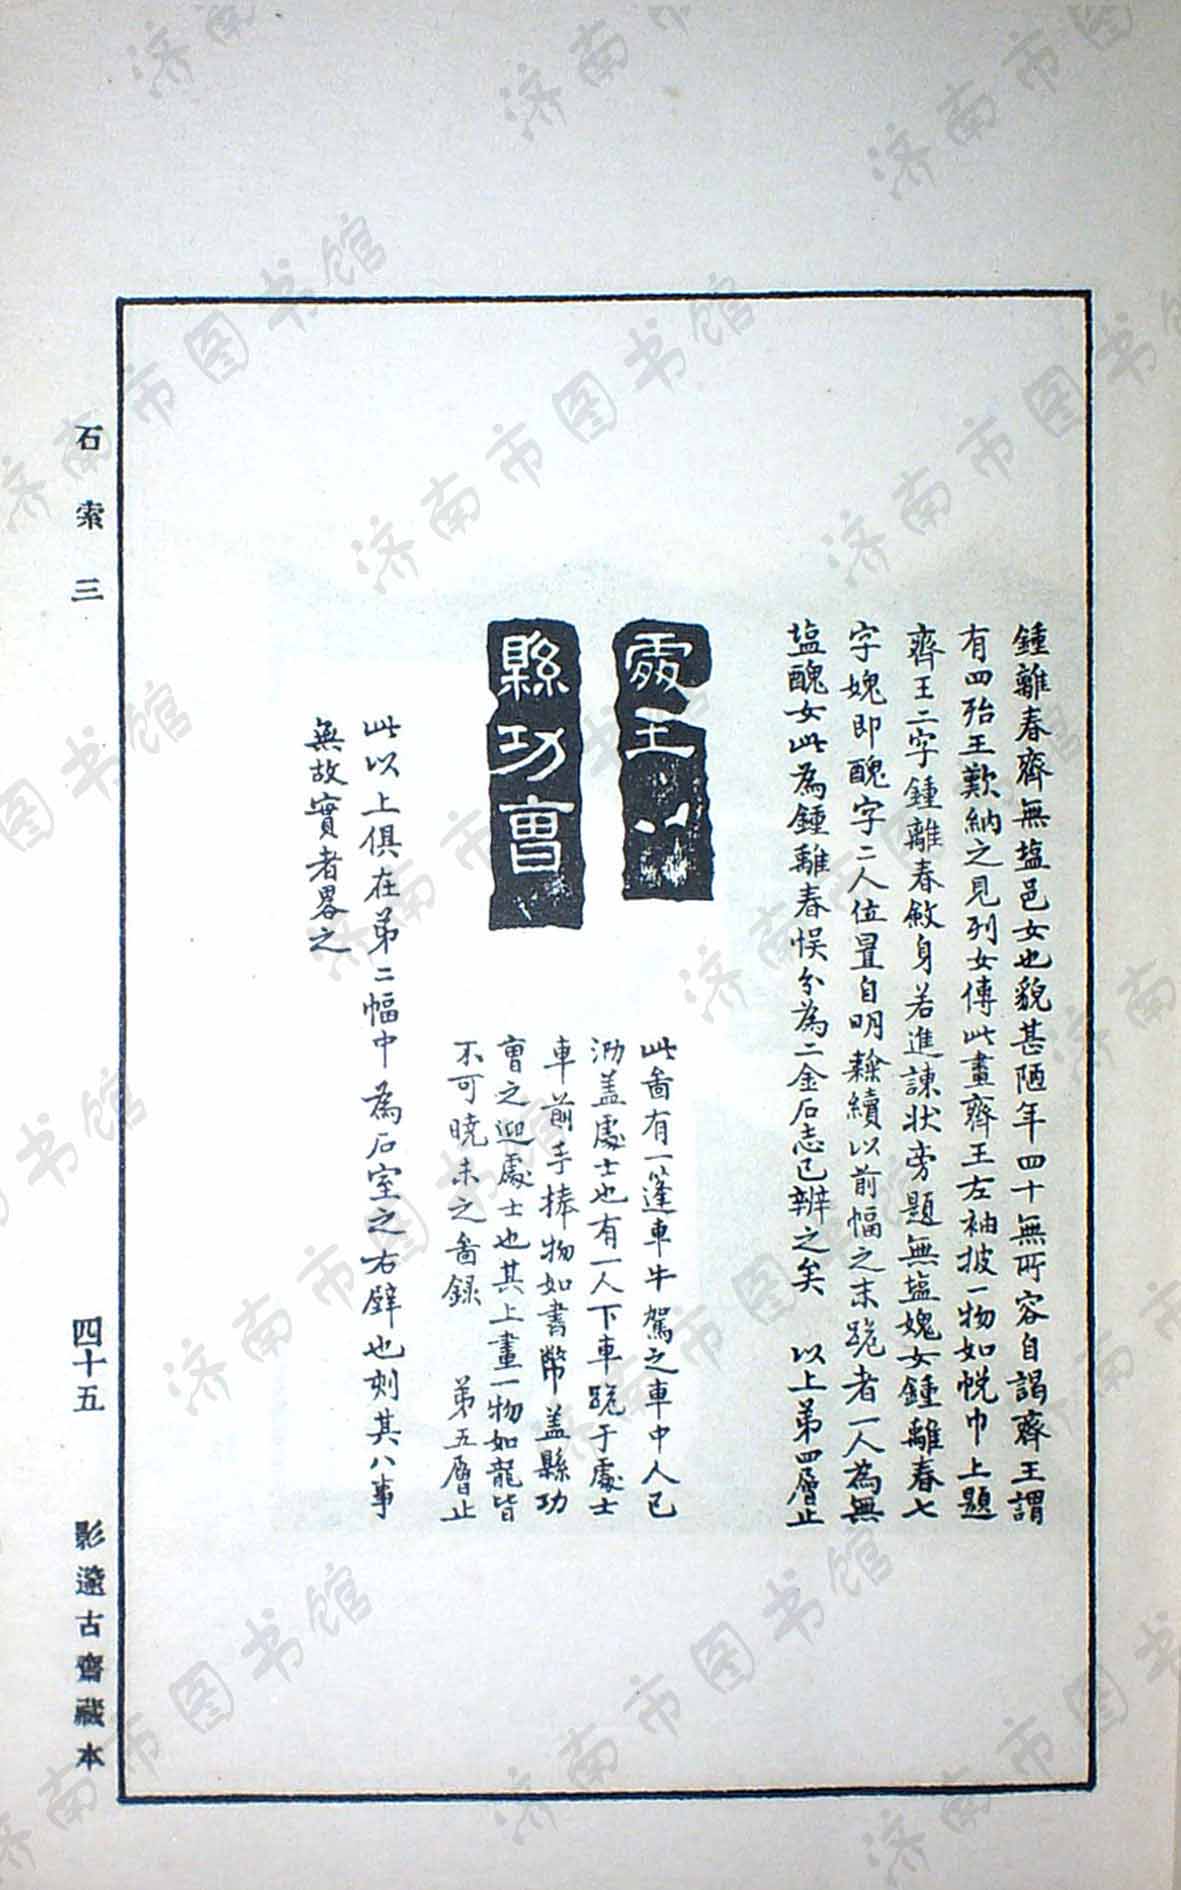 鍾離春齊無塩邑女也貌甚陋年四十無所容自謁齊王謂
有四殆王歎納之見列女傳此畫齊王左袖披一物如帨巾上題
齊王二字鍾離春斂身若進諫狀旁題無塩媿女鍾離春七
字媿即醜字二人位置自明隸續以前幅之末跪者一人為無
塩醜女此為鍾離春悞分為二金石志已辨之矣 以上第四層止
處士
此啚有一篷車牛駕之車中人已
泐盖處士也有一人下車跪于處士
車前手捧物如書幣盖縣功
曹之迎處士也其上畫一物如龍皆
不可曉未之啚録 第五層止
縣功曹
此以上俱在第二幅中為石室之右壁也刻其八事
無故實者畧之
石索三
四十五
影邃古齋藏本
济南市图书馆